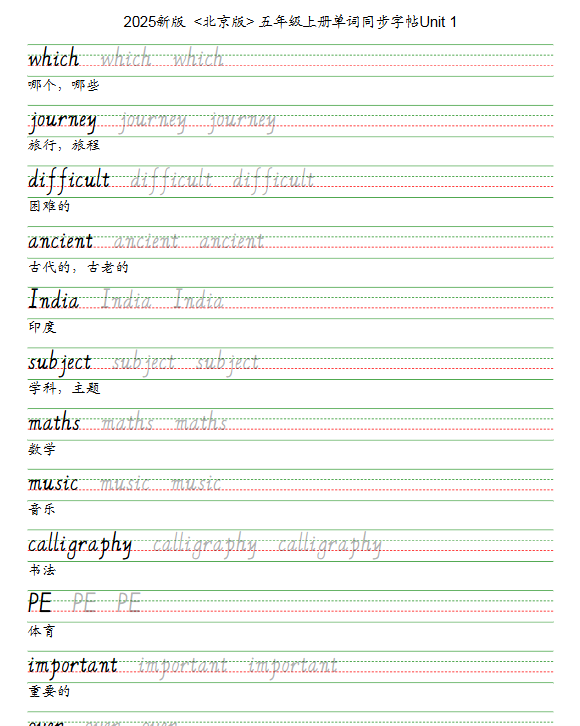 2025新版 <北京版> 五年级上册单词同步字帖Unit 1
which which which
哪个，哪些
journey journey journey
旅行，旅程
difficult difficult difficult
困难的
ancient ancient ancient
古代的，古老的
India India India
印度
subject subject subject
学科，主题
maths maths maths
数学
music music music
音乐
calligraphy calligraphy calligraphy
书法
PE PE PE
体育
important important important
重要的